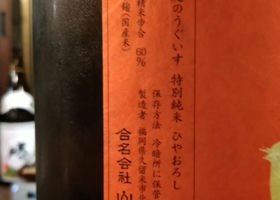 のうぐいす 特別純米 ひやおろし
保存方法 冷暗所に保管
精米歩合 60%
製造者 福岡県久留米市北
麹(国産米)
合名会社 山